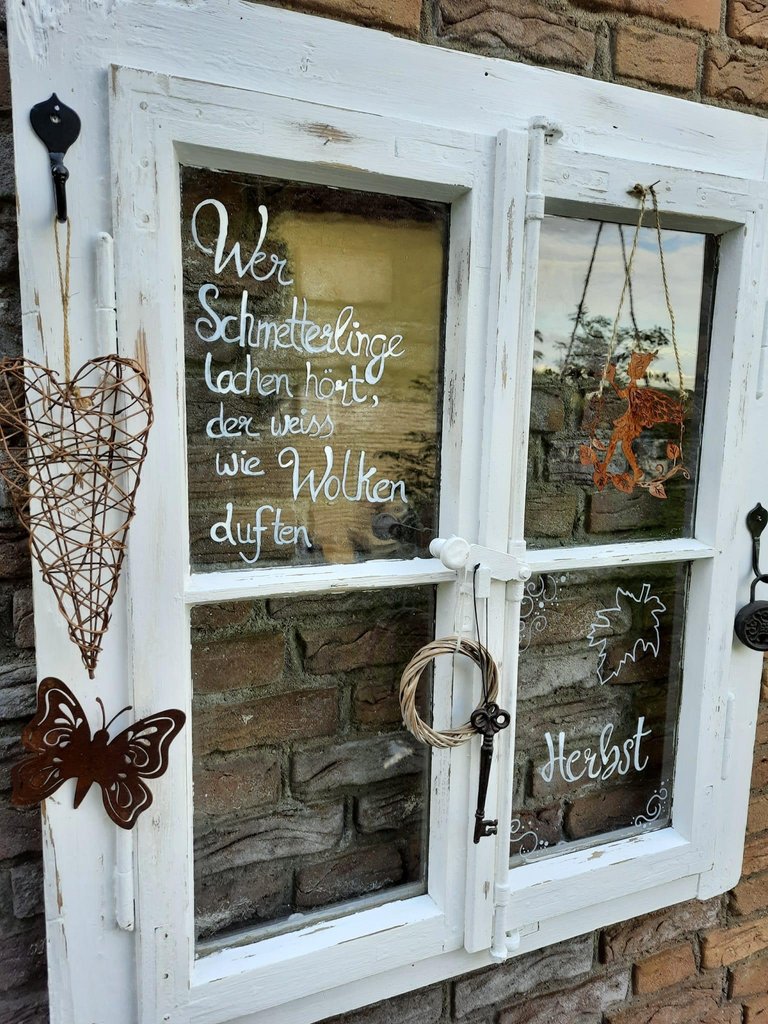 Wer
Schmetterlinge
lachen hört,
der weiss
wie Wolken
duften
Herbst